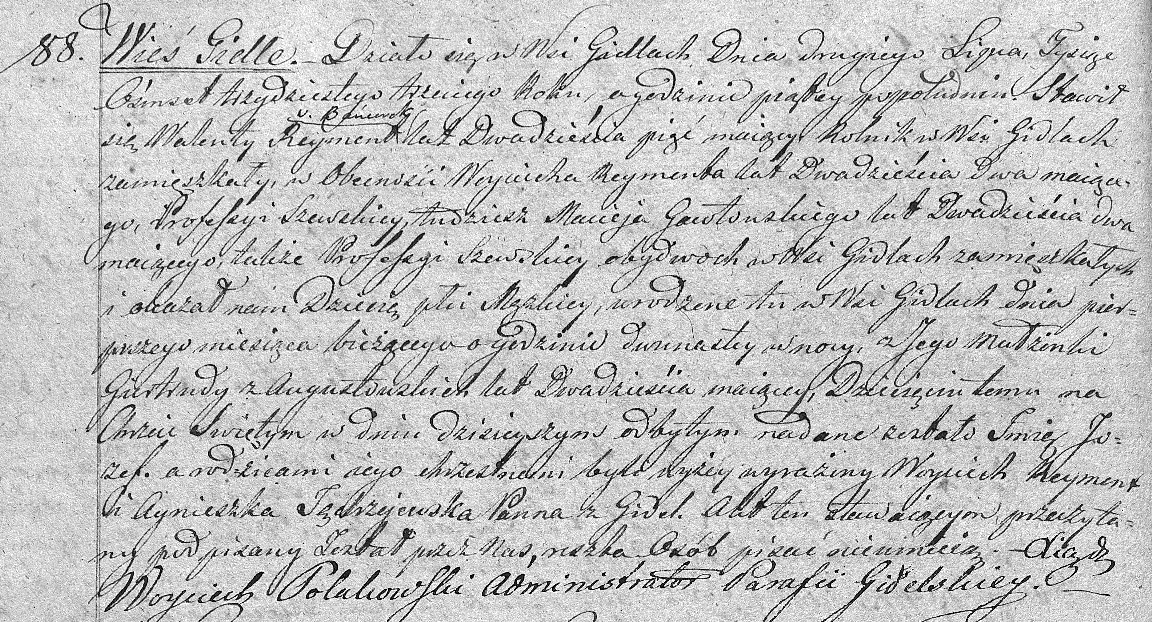 88. Wieś Gidle. Działo się w Wsi Gidlach Dnia drugiego Lipca, Tysiąc
Ośmset trzydziestego trzeciego Roku, o godzinie piątey popołudniu. Stawił
się Walenty Reyment v. Banurski lat Dwadzieścia pięć maiący, Rolnik w Wsi Gidlach
zamięszkały, w Obecności Woyciecha Reymenta lat Dwadzieścia Dwa maiące-
go, Professyi Szewskiey, tudziesz Macieja Gawłowskiego lat Dwadzieścia dwa
maiącego, także Professyi Szewskiey obydwoch w Wsi Gidlach zamięszkałych
i okazał nam Dziecię płci Męzkiey, urodzone tu w Wsi Gidlach dnia pier-
wszego miesiąca bieżącego o godzinie dwunastey w nocy, z Jego Małżonki
Giertrudy z Augustowskich lat Dwadzieścia maiącey, Dziecięciu temu na
Chrzcie Świętym w dniu dzisieyszym odbytym nadane zostało Imię Jó-
zef. a rodzicami iego chrzestnemi byli wyżey wyrażony Woyciech Reyment
i Agnieszka Jędrzejewska Panna z Gidel. Akt ten stawaiącym przeczyta-
ny podpisany Został przez Nas, reszta Osób pisać nieumieią. - Xiądz
Woyciech Polakowski Administrator Parafii Gidelskiey.